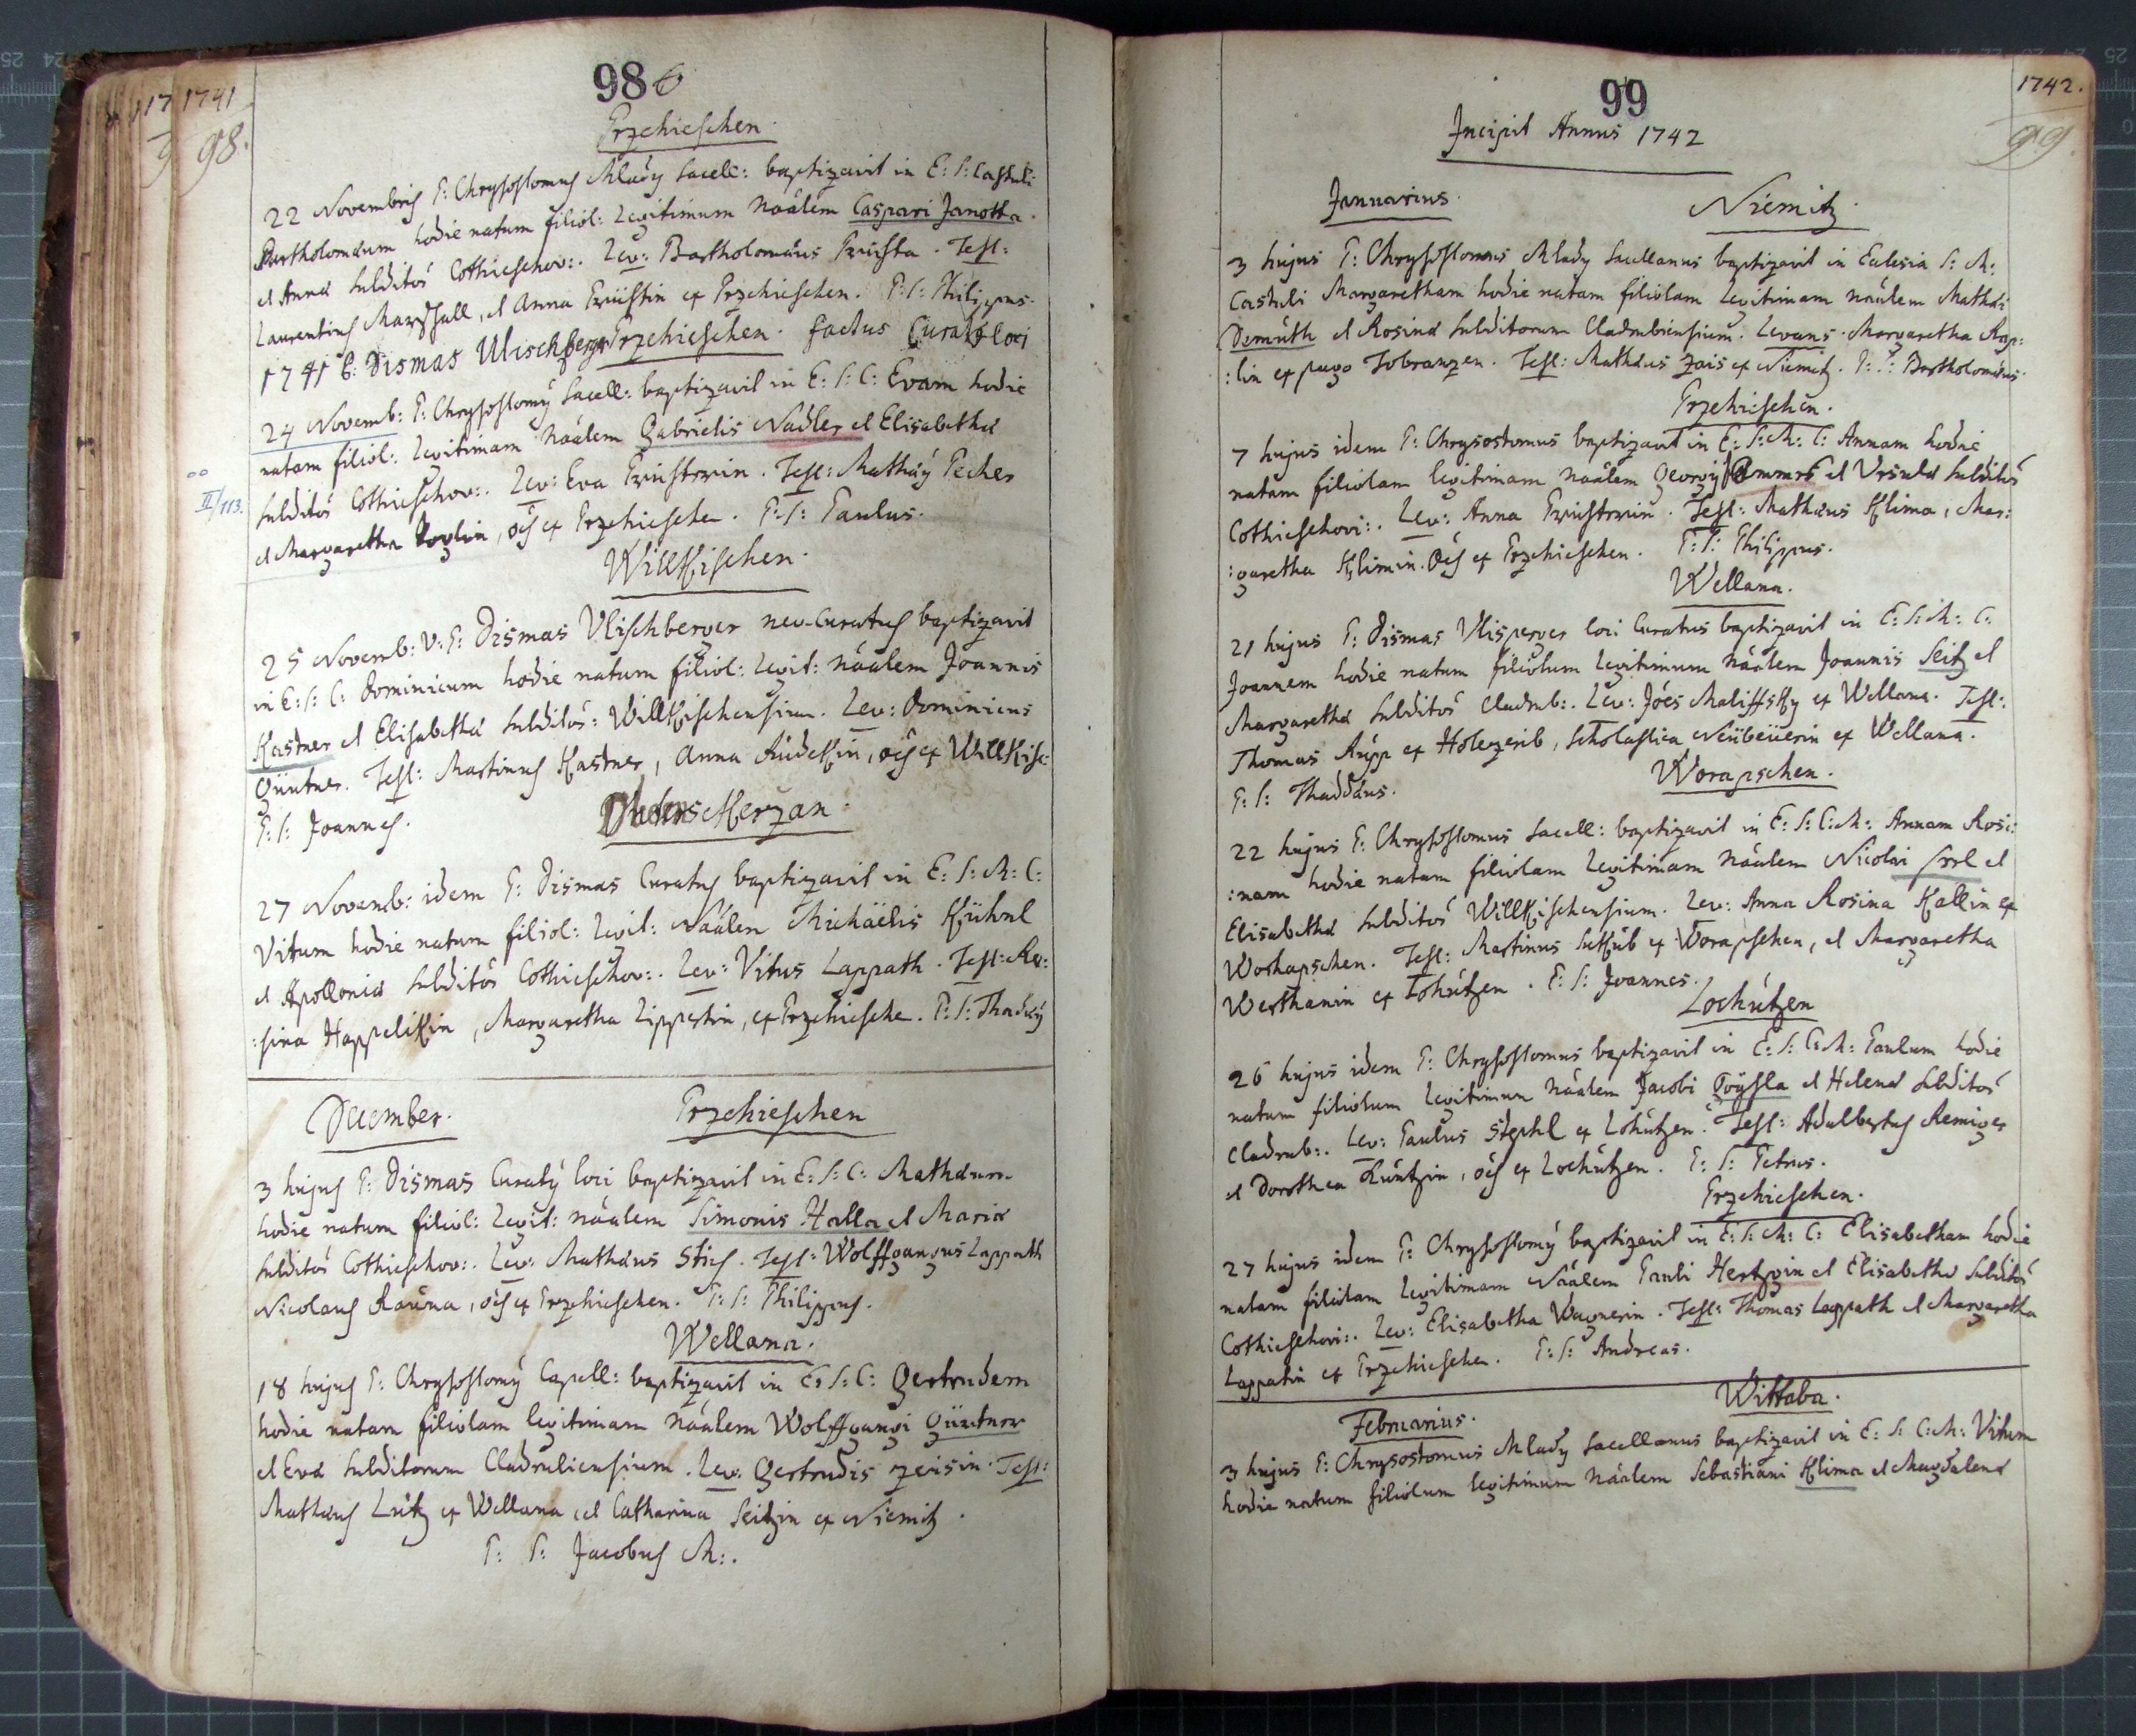 117 1741
986
9 98.
Przehieschen.
22 Novembris P: Chrysostomus Mlady Sacell: baptizavit in E: S: Castuli
Bartholomæum hodie natum filiol: legitimum náálem Caspari Janotka
et Annæ subditôs Cothieschov:. Lev: Bartholomæus Fruista. Test:
Laurentius Marschall, et Anna Fruistin ex Przehieschen. P: S: Philippus.
1741 P: Dismas Ulischberger Przehieschen. factus Curatus loci
24 Novemb: P: Chrysostomy Sacell: baptizavit in E: S: C: Evam hodie
natam filiol: legitimam Náálem Gabrielis Nadler et Elisabethæ
II/113.
subditôs Cothieschov:. Lev: Eva Fruistrin. Test: Mathæy Pecher
et Margaretha, oēs ex Przehieschen. P: S: Paulus.
Willkischen.
25 Novemb: V: P: Dismas Ulischberger neo-Curatus baptizavit
in E: S: C: Dominicum hodie natum filiol: legit: náálem Joannis
Kastner et Elisabethæ subditôs: Willkischensium. Lev: Dominicus
Güntner. Test: Martinus Kastner, Anna Rudekin, oēs ex Willkisc:
P: S: Joannes.
Merzan.
27 Novemb: idem P: Dismas Curatus baptizavit in E: S: M: C:
Vitum hodie natum filiol: legit: Náálem Michäelis Kühnl
et Apolloniæ subditôs Cothieschov:. Lev: Vitus Lappath. Test: Ro:
:sina Happelikin, Margaretha Lippertin, ex Przehieschen. P: S: Thadæy
December. Przehieschen
3 hujus P: Dismas Curatȳ loci baptizavit in E: S: C: Mathæum
hodie natum filiol: legit: náálem Simonis Halla et Mariæ
subditôs Cothieschov:. Lev: Mathæus Stich. Test: Wolffgangus Lappath
Nicolaus Rauna, oēs ex Przehieschen. P: S: Philippus.
Wellana.
18 hujus P: Chrysostomȳ Capell: baptizavit in E: S: C: Gertrudem
hodie natam filiolam legitimam náálem Wolffgangi Güntner
et Evæ subditorum Cladrubiensium. Lev: Gertrudis Zeisin. Test:
Mathæus Lutz ex Wellana, et Catharina Seitzin ex Niemitz.
P: S: Jacobus M:.
99
1742.
99.
Incipit Annus 1742
Januarius. Niemitz.
3 hujus P: Chrysostomus Mlady Sacellanus baptizavit in Eclesia S: M:
Castuli Margaretham hodie natam filiolam legitimam náálem Mathæi
Demúth et Rosinæ subditorum Cladrubiensium. Levans. Margaretha Rap:
:lin ex pago Tobranzen. Test: Mathæus Zais ex Niemitz. P: S: Bartholomæus.
Przehieschen.
7 hujus idem P: Chrysostomus baptizavit in E: S: M: C: Annam hodie
natam filiolam legitimam náálem Georgȳ et Ursulæ subditôs
Cothieschovi:. Lev: Anna Fruistrin. Test: Mathæus Klima, Mar:
:garetha Klimin. Oēs ex Przehieschen. P: S: Philippus.
Wellana.
21 hujus P: Dismas Ulisperger loci Curatus baptizavit in E: S: M: C:
Joannem hodie natum filiolum legitimum náálem Joannis Seitz et
Margarethæ subditôs Cladrub:. Lev: Jóes Maliffsky ex Wellana. Test:
Thomas Rúpp ex Holezrib, Scholastica Neübeüerin ex Wellana.
P: S: Thaddæus.
Worapschen.
22 hujus P: Chrysostomus Sacell: baptizavit in E: S: C: M: Annam Rosi:
:nam hodie natam filiolam legitimam náálem Nicolai et
Elisabethæ subditôs Willkischensium. Lev: Anna Rosina Kallin ex
Worhapschen. Test: Martinus Sutkúb ex Worapschen, et Margaretha
Werthanin ex Lohútzen. P: S: Joannes.
Lochútzen
26 hujus idem P: Chrysostomus baptizavit in E: S: C: M: Paulum hodie
natum filiolum legitimum náálem Jacobi Poÿsla et Helenæ subditôs
Cladrub:. Lev: Paulus Stephl ex Lohútzen. Test: Adalbertus Remiger
et Dorothea Kúntzin, oēs ex Lochútzen. P: S: Petrus.
Przehieschen.
27 hujus idem P: Chrysostomȳ baptizavit in E: S: M: C: Elisabetham hodie
natam filiolam legitimam náálem Pauli Hertzin et Elisabethæ subditôs
Cothieschovi:. Lev: Elisabetha Wagnerin. Test: Thomas Lappath et Margaretha
Lappatin ex Przehieschen. P: S: Andreas.
Februarius. Wittaba.
3 hujus P: Chrysostomus Mlady Sacellanus baptizavit in E: S: C: M: Vitum
hodie natum filiolum legitimum náálem Sebastiani Klima et Magdalenæ